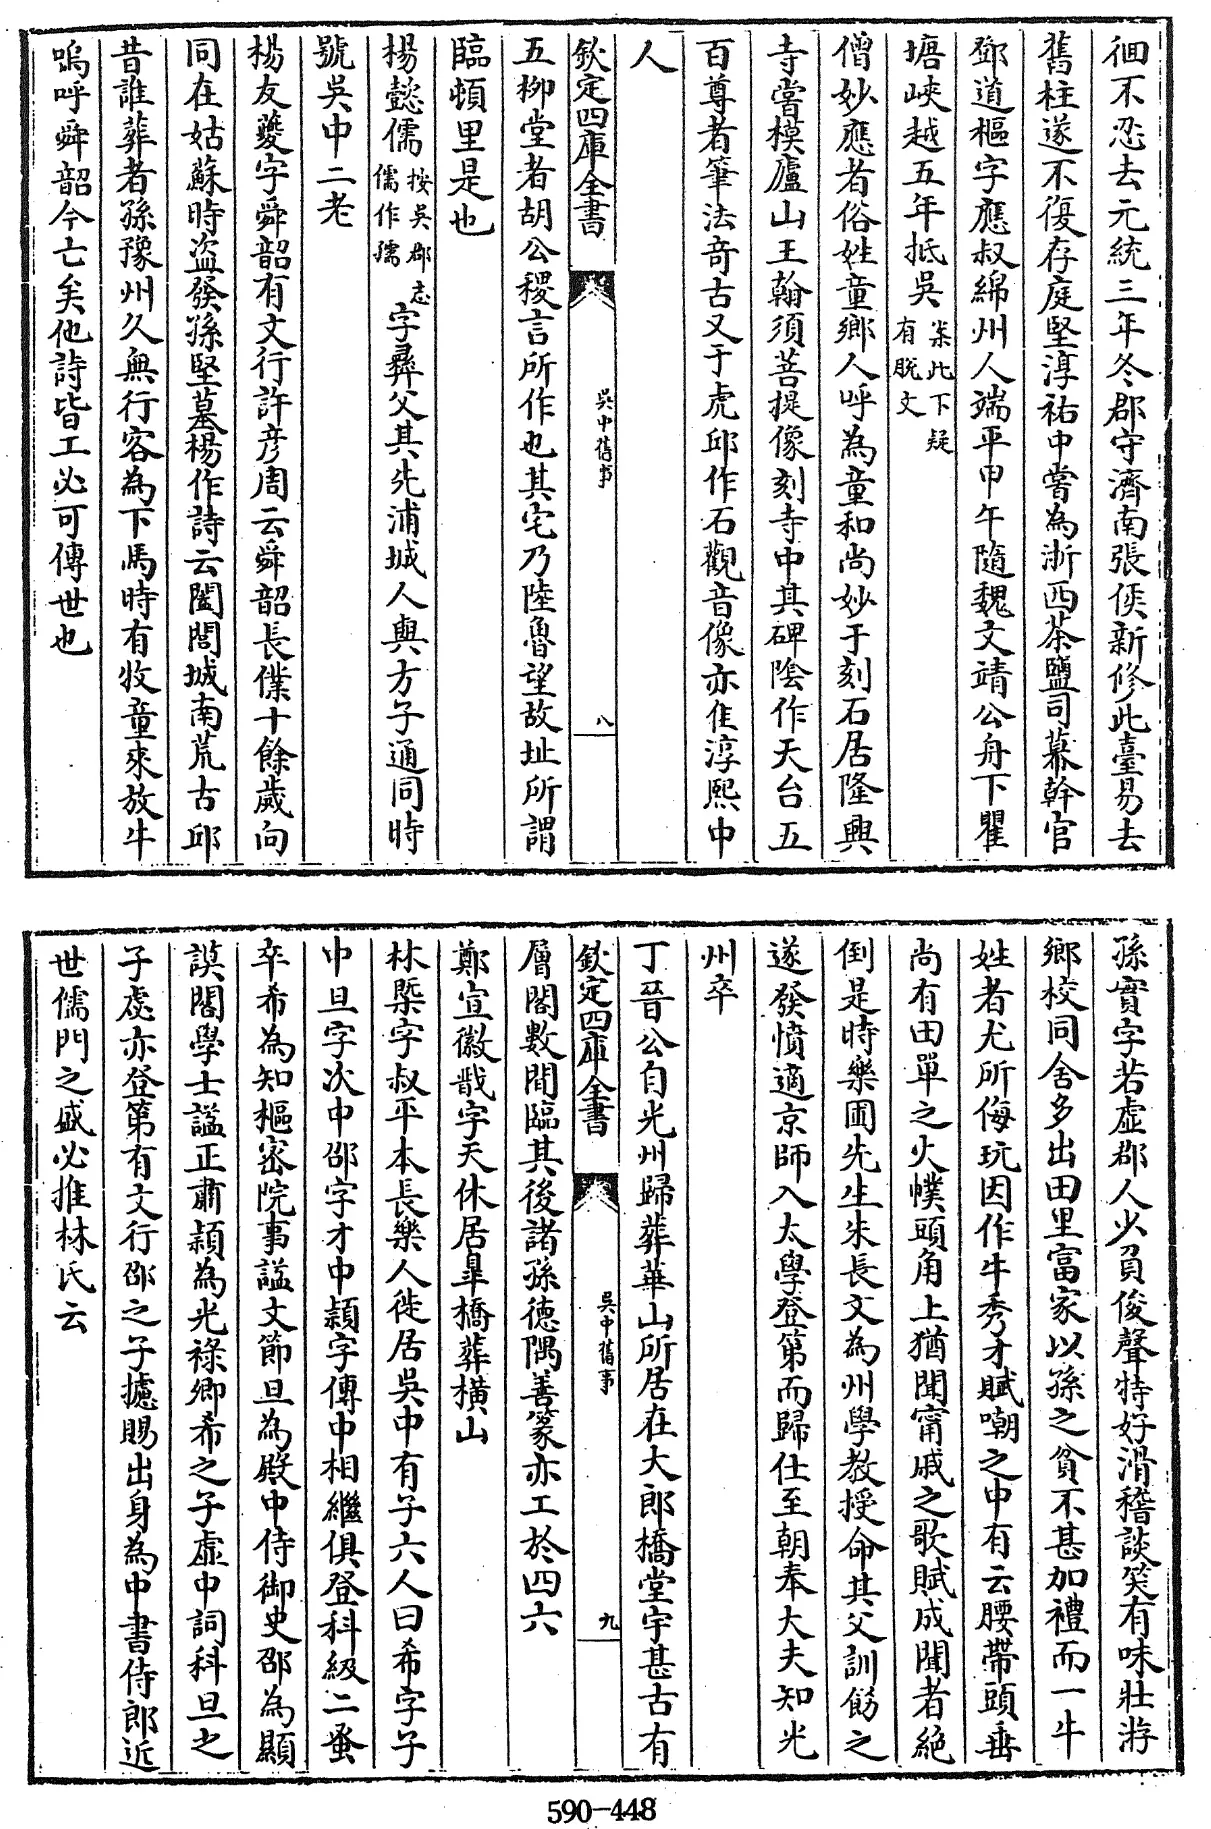 徊不忍去元統三年冬郡守濟南張侯新修此臺易去
舊柱遂不復存庭堅淳祐中嘗為浙西茶鹽司幕幹官
鄧道樞字應叔綿州人端平甲午隨魏文靖公舟下瞿
塘峽越五年抵吳案此下疑有脫文
僧妙應者俗姓童鄉人呼為童和尚妙于刻石居隆興
寺嘗模廬山王翰須菩提像刻寺中其碑陰作天台五
百尊者筆法奇古又于虎邱作石觀音像亦佳淳熙中
人
欽定四庫全書 吳中舊事 八
五柳堂者胡公稷言所作也其宅乃陸魯望故址所謂
臨頓里是也
楊懿儒按吳郡志儒作孺字彞父其先浦城人與方子通同時
號吳中二老
楊友夔字舜韶有文行許彥周云舜韶長僕十餘歲向
同在姑蘇時盜發孫堅墓楊作詩云闔閭城南荒古邱
昔誰葬者孫豫州久無行客為下馬時有牧童來放牛
嗚呼舜韶今亡矣他詩皆工必可傳世也
孫實字若虛郡人少負俊聲特好滑稽談笑有味壯游
鄉校同舍多出田里富家以孫之貧不甚加禮而一牛
姓者尤所侮玩因作牛秀才賦嘲之中有云腰帶頭垂
尚有田單之火幞頭角上猶聞甯戚之歌賦成聞者絕
倒是時樂圃先生朱長文為州學教授命其父訓飭之
遂發憤適京師入太學登第而歸仕至朝奉大夫知光
州卒
丁晉公自光州歸葬華山所居在大郎橋堂宇甚古有
欽定四庫全書 吳中舊事 九
層閣數間臨其後諸孫德隅善篆亦工於四六
鄭宣徽戩字天休居臯橋葬橫山
林槩字叔平本長樂人徙居吳中有子六人曰希字子
中旦字次中邵字才中顏字傳中相繼俱登科級二蚤
卒希為知樞密院事諡文節旦為殿中侍御史邵為顯
謨閣學士諡正肅顏為光祿卿希之子虛中詞科旦之
子虙亦登第有文行邵之子攄賜出身為中書侍郎近
世儒門之盛必推林氏云
590-448